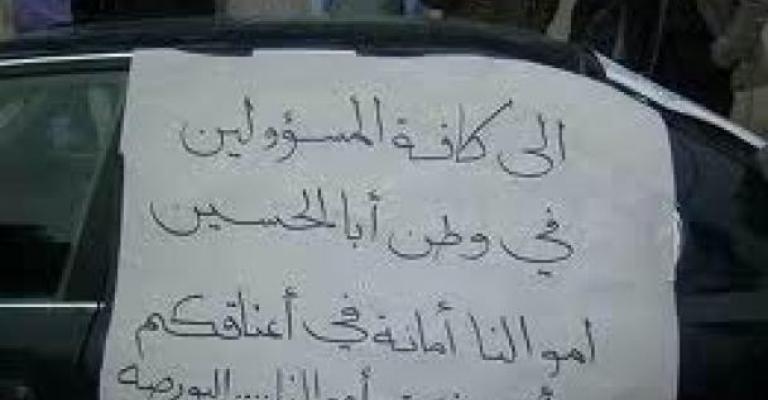 الى كافة المسؤولين
في وطن أبا الحسين
اموالنا أمانة في أعناقكم
أموالنا .... البورصه